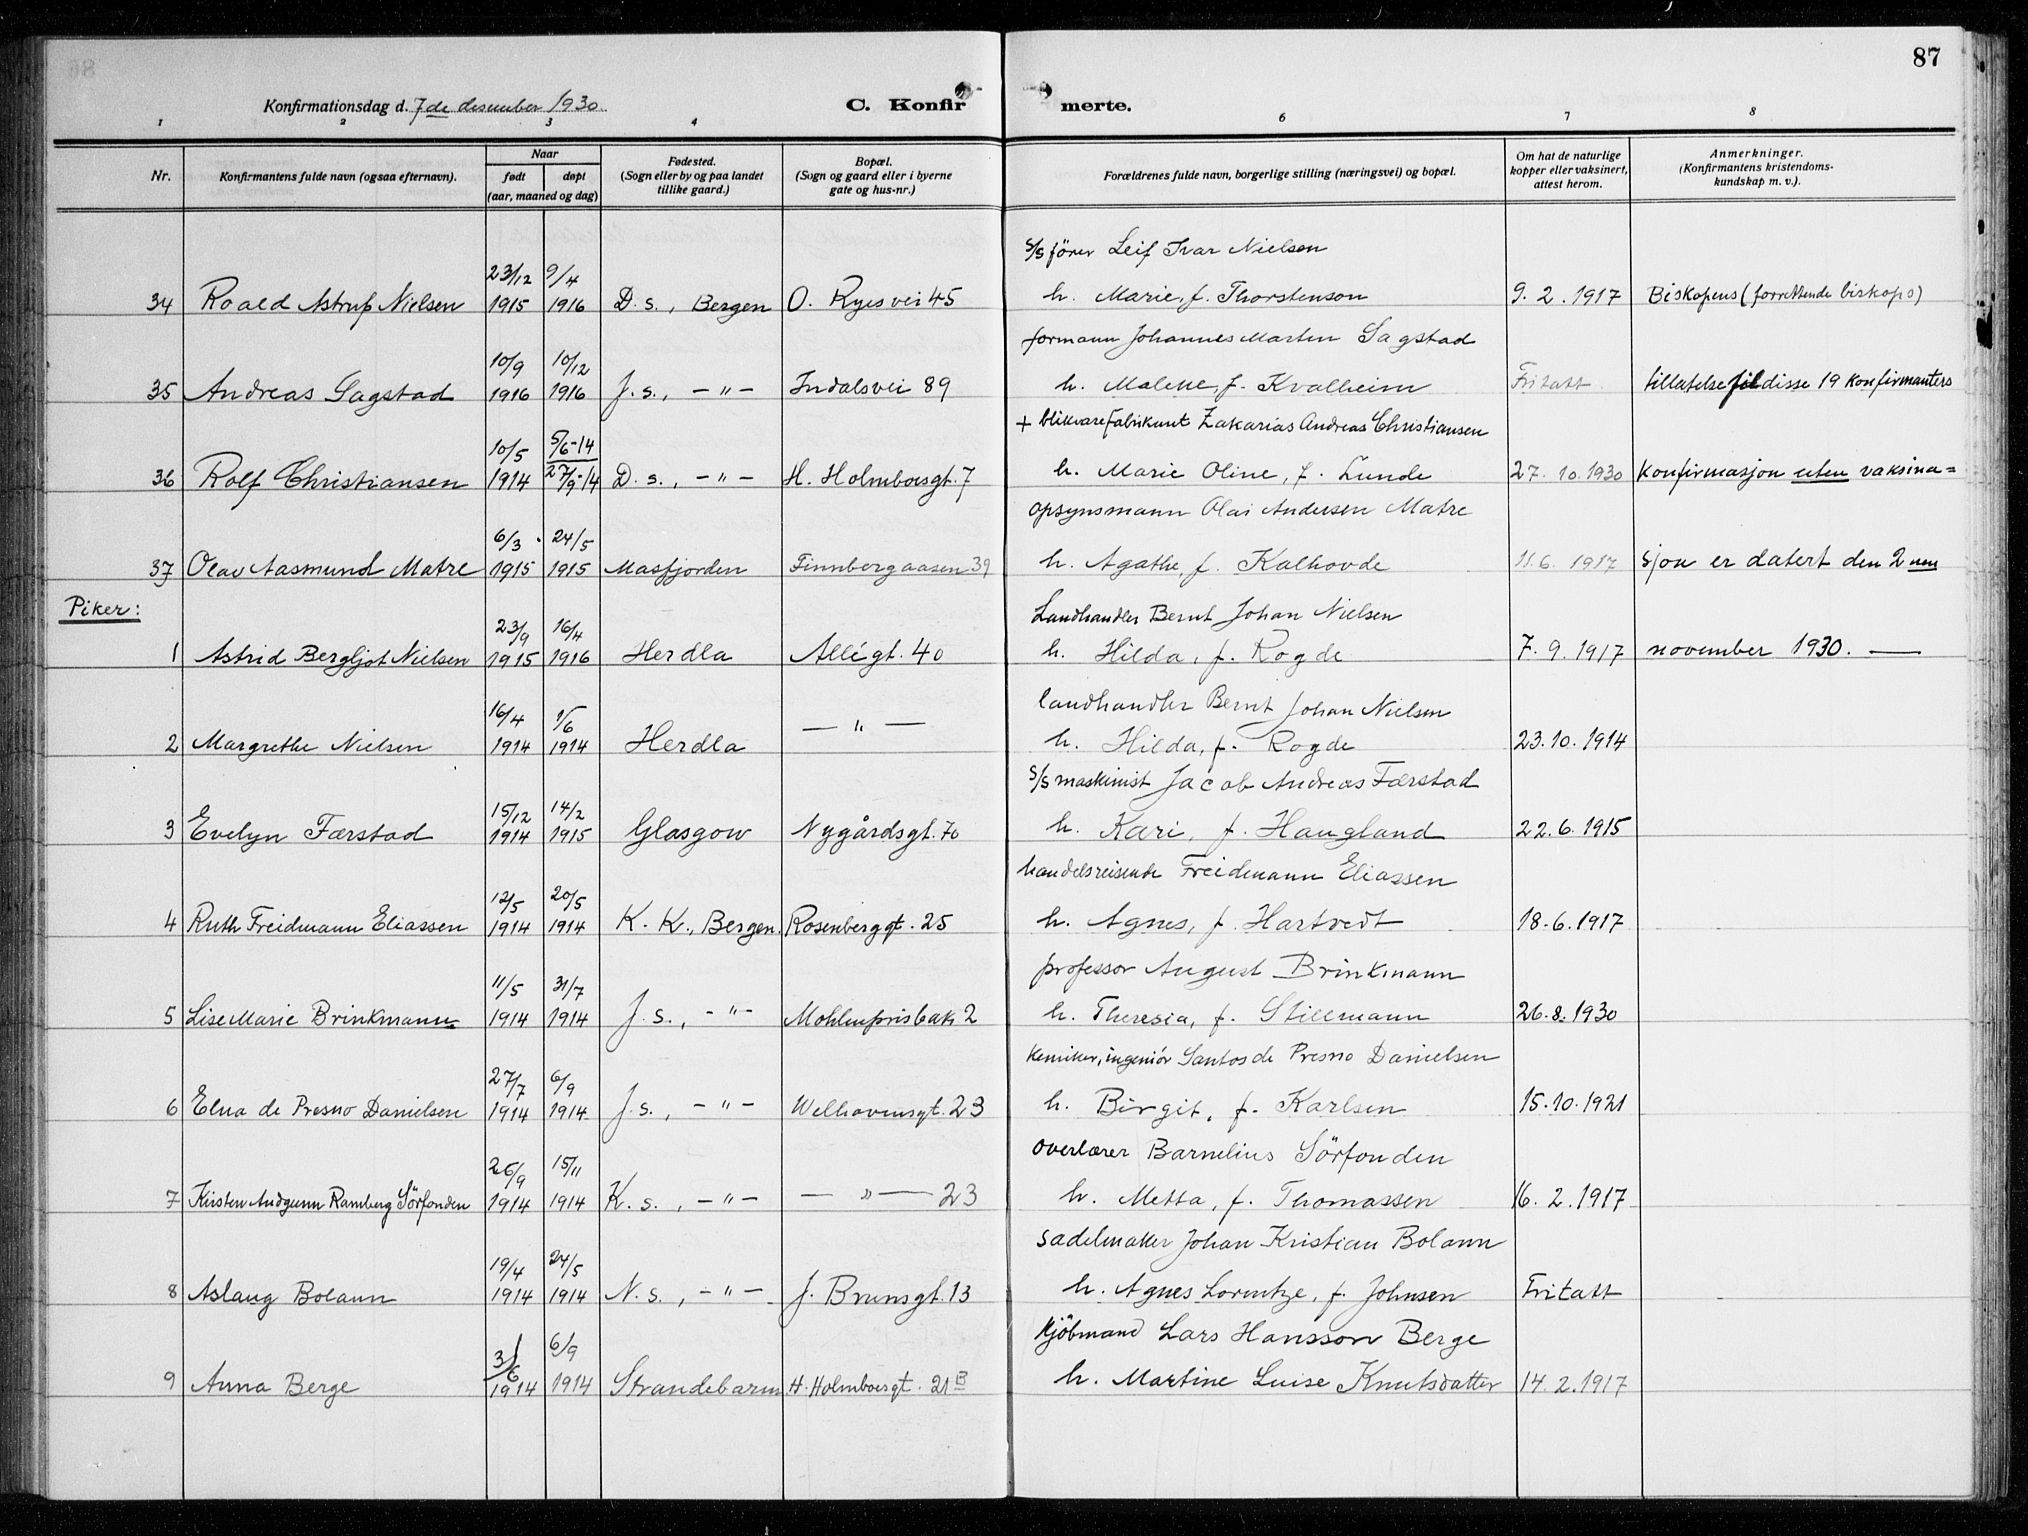 87
Konfirmationsdag d. 7de desember 1930.
C. Konfirmerte.
1 2 3 4 6 7 8
Nr. | Konfirmantens fulde navn (ogsaa efternavn). | Naar født døpt (aar, maaned og dag) | Fødested. (Sogn eller by og paa landet tillike gaard.) | Bopæl. (Sogn og gaard eller i byerne gate og hus-nr.) | Forældrenes fulde navn, borgerlige stilling (næringsvei) og bopæl. | Om hat de naturlige kopper eller vaksinert, attest herom. | Anmerkninger. (Konfirmantens kristendoms-kundskap m. v.).
s/s fører Leif Ivar Nielsen
34 Roald Astrup Nielsen 23/12 1915 9/4 1916 D. s., Bergen O. Ryesvei 45 h. Marie, f. Thorstenson 9. 2. 1917 Biskopens (forrettende biskops)
formann Johannes Marten Sagstad
35 Andreas Sagstad 10/9 1916 10/12 1916 J. s., - " - Indalsvei 89 h. Malene, f. Kvalheim Fritatt tillatelse til disse 19 konfirmanters
+ blikvarefabrikant Zakarias Andreas Christiansen
36 Rolf Christiansen 10/5 1914 5/6-14 27/9-14 D. s., - " - H. Holmboesgt. 7 h. Marie Oline, f. Lunde 27. 10. 1930 konfirmasjon uten vaksina=
opsynsmann Olai Andersen Matre
37 Olav Aasmund Matre 6/3 1915 24/5 1915 Masfjorden Finnbergaasen 39 h. Agathe, f. Kalhovde 11. 6. 1917 sjon er datert den 2nen
Piker:
Landhandler Bernt Johan Nielsen
1 Astrid Bergljot Nielsen 23/9 1915 16/4 1916 Herdla Allégt. 40 h. Hilda, f. Rogde 7. 9. 1917 november 1930. —
landhandler Bernt Johan Nielsen
2 Margrethe Nielsen 16/4 1914 1/6 1914 Herdla — " — h. Hilda, f. Rogde 23. 10. 1914
s/s maskinist Jacob Andreas Færstad
3 Evelyn Færstad 15/12 1914 14/2 1915 Glasgow Nygårdsgt. 70 h. Kari, f. Haugland 22. 6. 1915
handelsreisende Freidemann Eliassen
4 Ruth Freidmann Eliassen 12/5 1914 20/5 1914 K. K., Bergen. Rosenberggt. 25 h. Agnes, f. Hartvedt 18. 6. 1917
professor August Brinkmann
5 Lise Marie Brinkmann 11/5 1914 31/7 1914 J. s., - " - Møhlenprisbak. 2 h. Theresia, f. Stillmann 26. 8. 1930
kemiker, ingeniør Santos de Presno Danielsen
6 Elna de Presno Danielsen 27/7 1914 6/9 1914 J. s., - " - Welhavensgt. 23 h. Birgit, f. Karlsen 15. 10. 1921
overlærer Barnelius Sörfonden
7 Kirsten Audgunn Ramberg Sörfonden 26/9 1914 15/11 1914 K. s., - " - — " — 23 h. Metta, f. Thomassen 16. 2. 1917
sadelmaker Johan Kristian Bolann
8 Aslaug Bolann 19/4 1914 24/5 1914 N. s., - " - J. Brunsgt. 13 h. Agnes Lorentze, f. Johnsen Fritatt
kjöbmand Lars Hansson Berge
9 Anna Berge 3/6 1914 6/9 1914 Strandebarm H. Holmboesgt. 21B h. Martine Luise Knutsdatter 14. 2. 1917